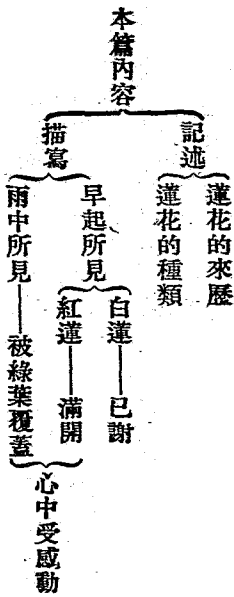 本篇內容
記述
蓮花的來歷
蓮花的種類
描寫
早起所見
白蓮——已謝
紅蓮——滿開
雨中所見——被綠葉覆蓋
心中受感動